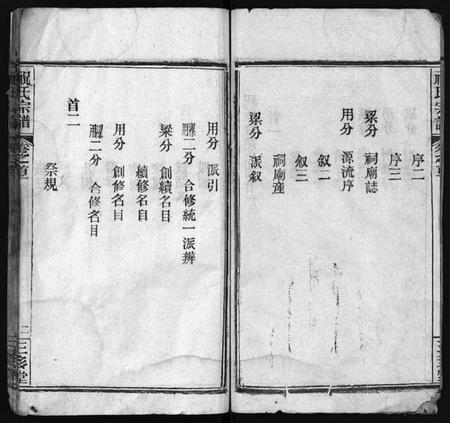 序二
序三
梁分 祠廟誌
用分 源流序
叙二
叙三
祠廟産
梁分 派叙
用分 派引
二分 合修統一派辨
梁分 創續名目
續修名目
用分 創修名目
二分 合修名目
首二
祭規
祝氏宗譜
卷之首
二
三
堂